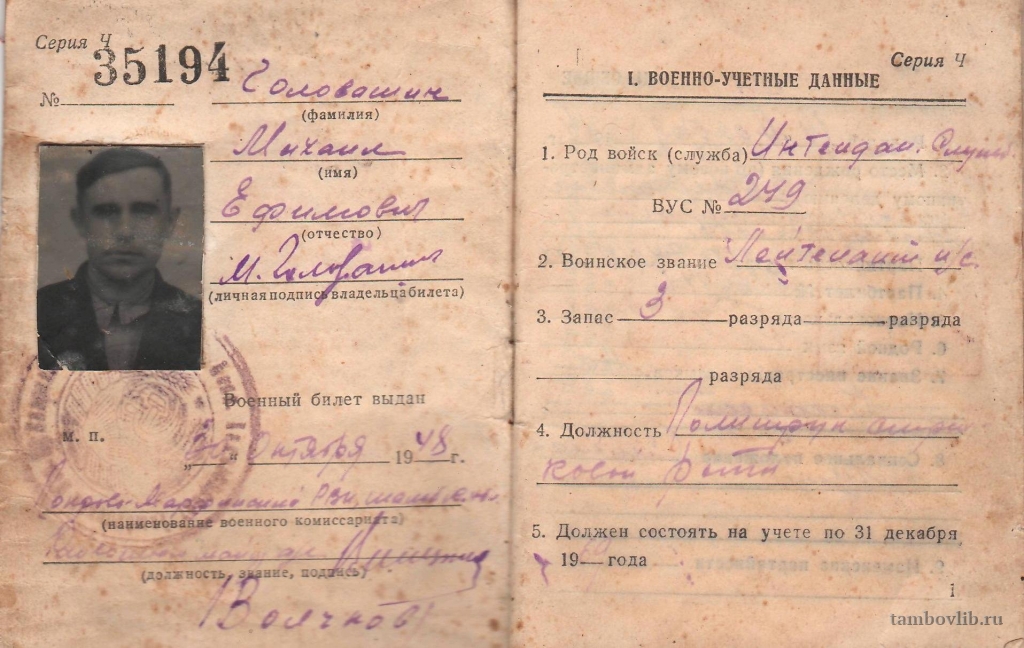 Серия Ч
35194
№
Головашин
(фамилия)
Михаил
(имя)
Ефимович
(отчество)
М. Головашин
(личная подпись владельца билета)
Военный билет выдан
м. п.
Октября 1948 г.
(наименование военного комиссариата)
(должность, звание, подпись)
Серия Ч
I. ВОЕННО-УЧЕТНЫЕ ДАННЫЕ
1. Род войск (служба) Интендан.
ВУС № 249
2. Воинское звание Лейтенант и/с.
3. Запас 3 разряда разряда
разряда
4. Должность Политрук
роты
5. Должен состоять на учете по 31 декабря
19 года
1
tambovlib.ru